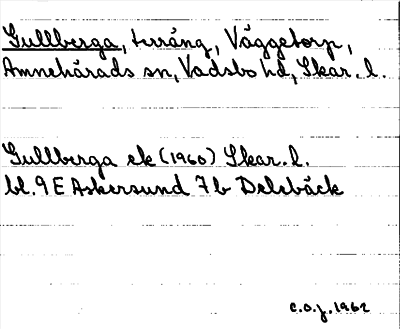 Gullberga, terräng, Väggetorp,
Amnehärads sn, Vadsbo hd, Skar. l.
Gullberga ek (1960) Skar. l.
bl. 9 E Askersund 7b Delsbäck
C.O.J. 1962